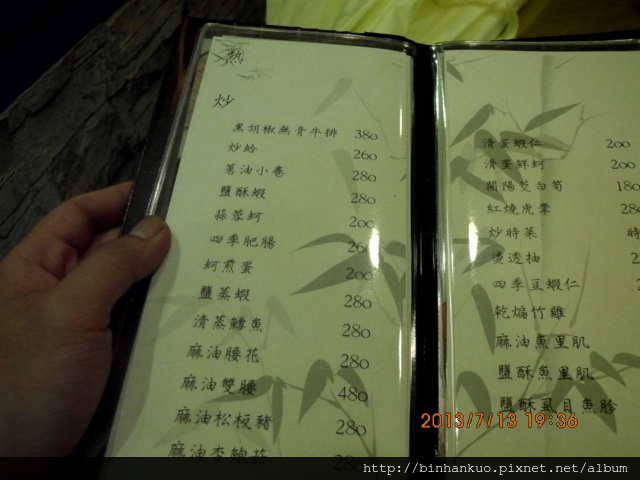 熱
炒
黑胡椒無骨牛排 380
炒蛤 260
蔥油小卷 280
鹽酥蝦 280
蒜蓉蚵 200
四季肥腸 260
蚵煎蛋 200
鹽蒸蝦 280
清蒸鱈魚 280
麻油腰花 280
麻油雙腰 480
麻油松板豬 280
麻油杏鮑菇
滑蛋蝦仁 200
滑蛋鮮蚵 200
開陽茭白筍 180
紅燒虎掌 280
炒時菜 時
燙透抽
四季豆蝦仁
乾煸竹雞
麻油魚里肌
鹽酥魚里肌
鹽酥虱目魚
2013/7/13 19:36
http://binhankuo.pixnet.net/album